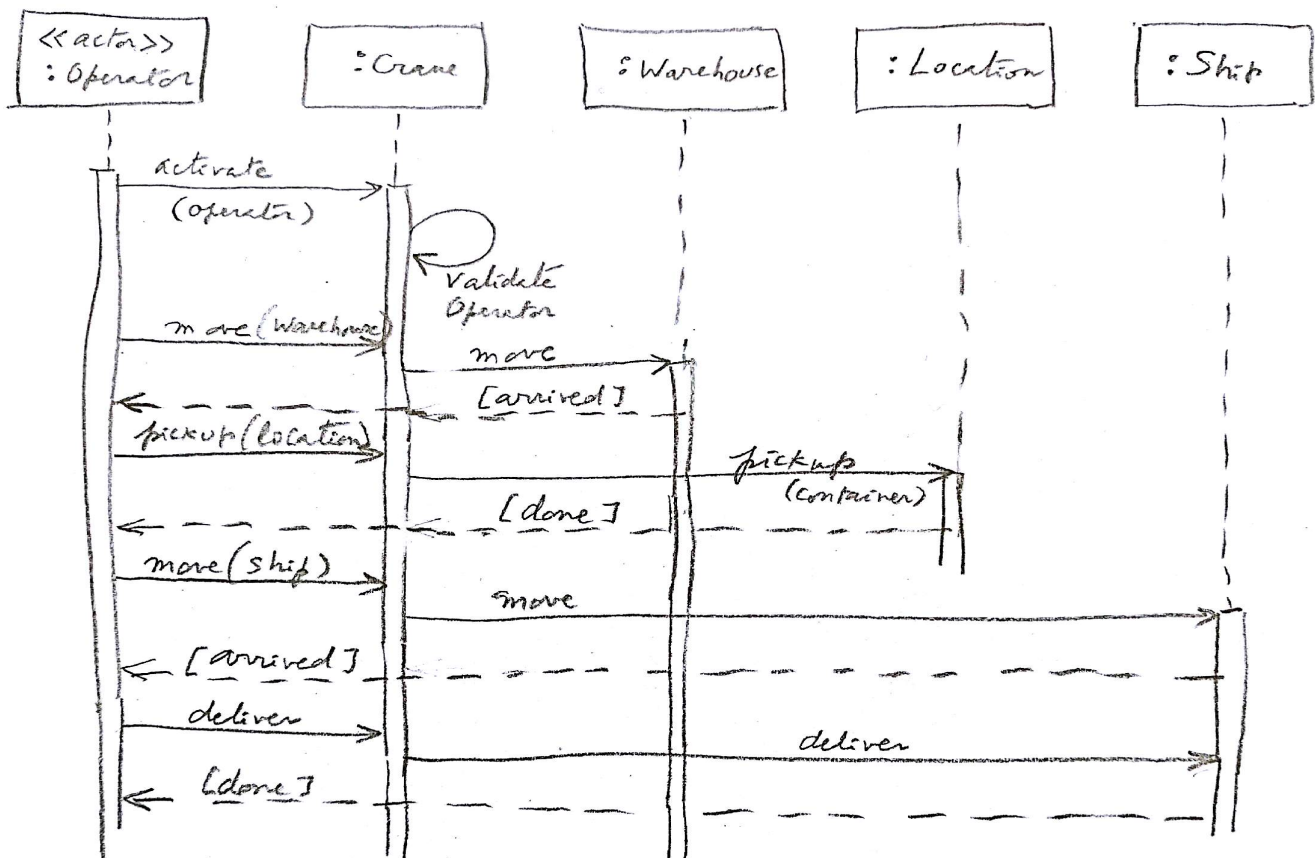 <<actor>>
: Operator
: Crane
: Warehouse
: Location
: Ship
activate
(operator)
validate
Operator
move(warehouse)
move
[arrived]
pickup(location)
pickup
(container)
[done]
move(ship)
move
[arrived]
deliver
deliver
[done]